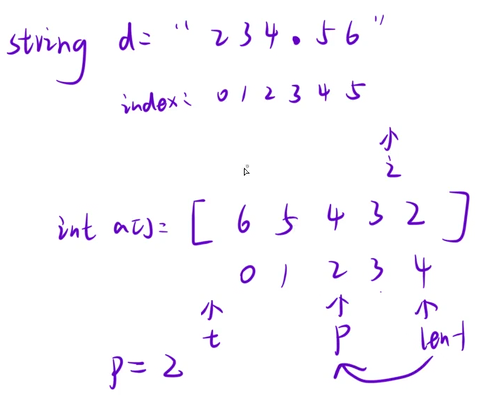 string d= "234.56"
index: 0 1 2 3 4 5
↑
i
int a[]= [ 6 5 4 3 2 ]
0 1 2 3 4
↑ ↑ ↑
t p len-1
p=2